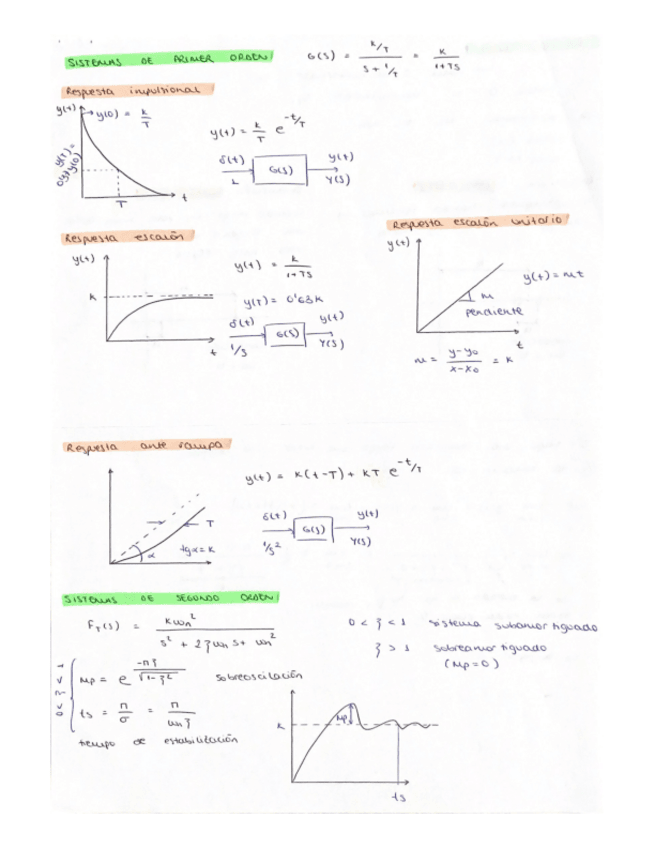 SISTEMAS DE PRIMER ORDEN: G(s) = (K/T)/(s + 1/T) = K/(1+Ts)
Respuesta impulsional
y(t) y(0) = K/T
y(t) = K/T e^(-t/T)
δ(t) 1 G(s) y(t) Y(s)
T t
Respuesta escalón
y(t)
K
y(t) = K/(1+Ts)
y(T) = 0'63K
δ(t) 1/s G(s) y(t) Y(s)
t
Respuesta escalón unitario
y(t)
y(t) = mt
m
pendiente
t
m = (y-y0)/(x-x0) = K
Respuesta ante rampa
y(t) = K(t-T) + KT e^(-t/T)
T
α tgα = K
δ(t) 1/s² G(s) y(t) Y(s)
SISTEMAS DE SEGUNDO ORDEN:
F_T(s) = Kωn²/(s² + 2ξωns + ωn²)
0 < ξ < 1 sistema subamortiguado
ξ > 1 sobreamortiguado
(Mp=0)
0 < ξ < 1
Mp = e^(-πξ/√(1-ξ²)) sobreoscilación
ts = π/σ = π/(ωnξ)
tiempo de estabilización
K Mp
ts